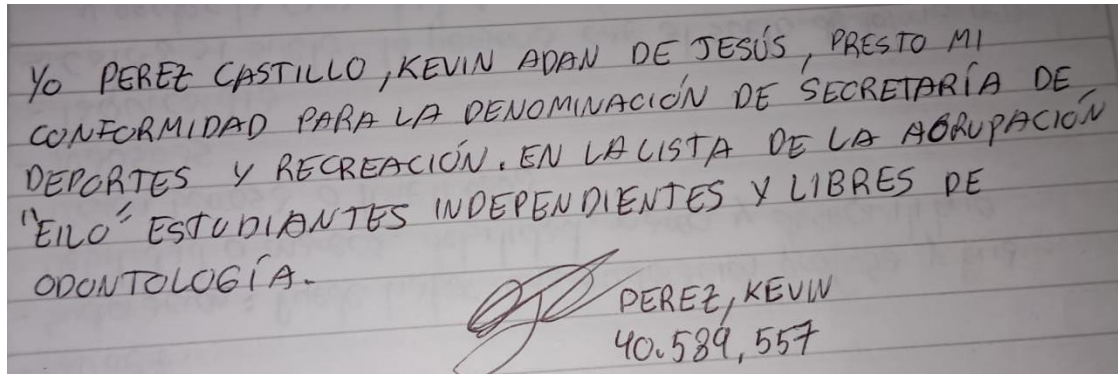 Yo PEREZ CASTILLO, KEVIN ADAN DE JESÚS, PRESTO MI
CONFORMIDAD PARA LA DENOMINACIÓN DE SECRETARÍA DE
DEPORTES Y RECREACIÓN. EN LA LISTA DE LA AGRUPACIÓN
"EILO" ESTUDIANTES INDEPENDIENTES Y LIBRES DE
ODONTOLOGÍA.
PEREZ, KEVIN
40.589,557